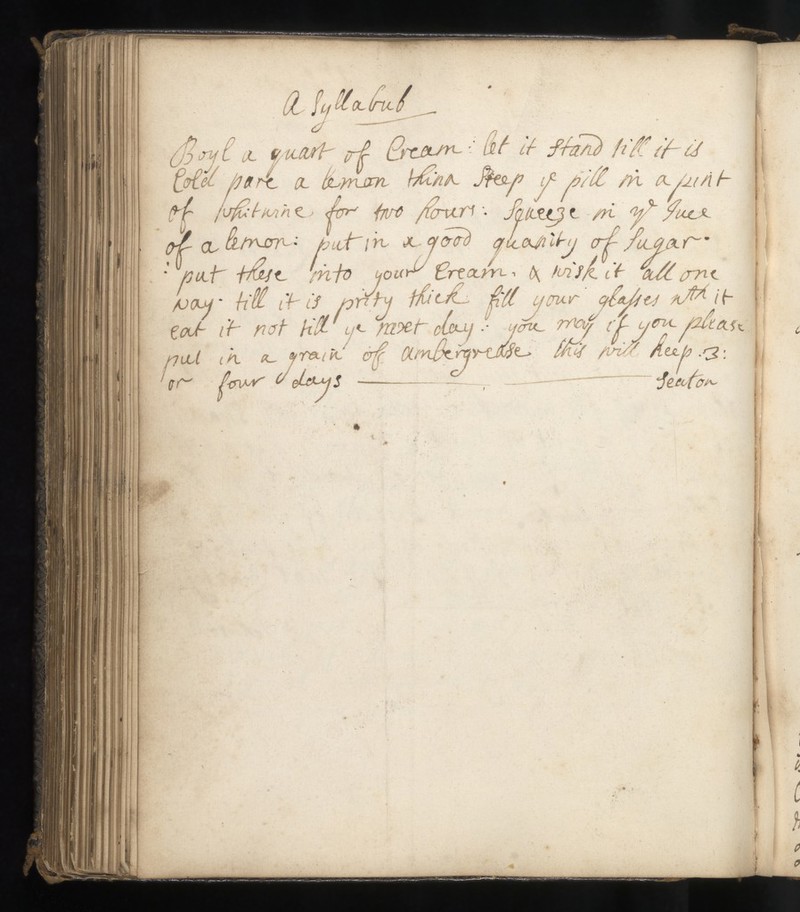 A Syllabub
Boyl a quart of Cream: let it Stand till it is
Cold pare a lemon thinn Steep ye pill in a pint
of whitwine for two hours: Squeeze in ye Juce
of a lemon: put in a good quanity of Sugar.
put these into your Cream. & wisk it all one
way. till it is prity thick fill your glasses wth it
eat it not till ye next day: you may if you please
put in a grain of Ambergrease this will keep :3:
or four days Seaton